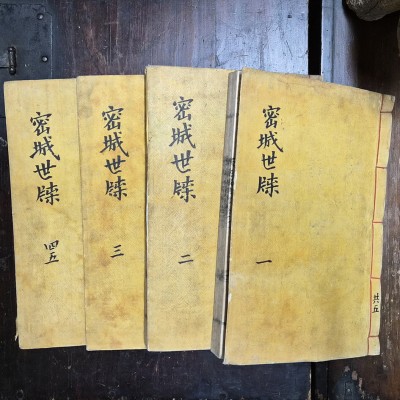 密城世牒
一
共五
密城世牒
二
密城世牒
三
密城世牒
四五